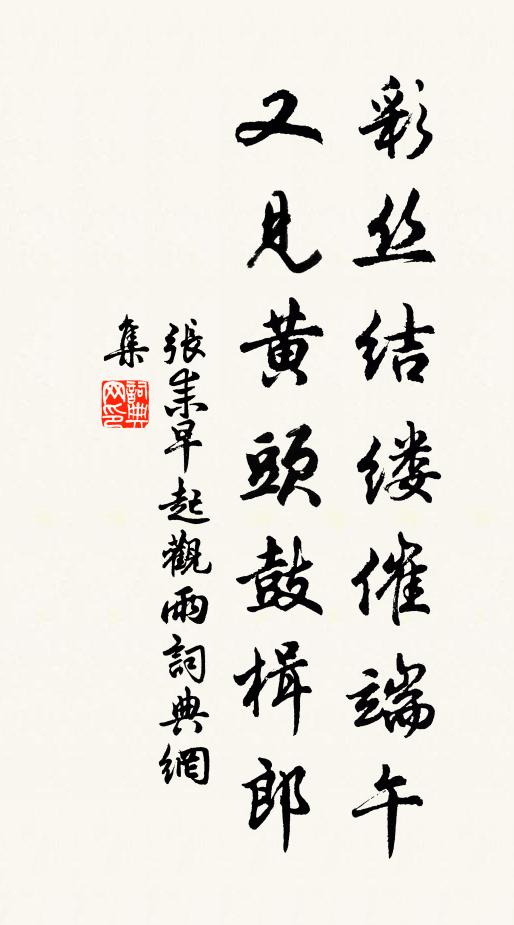 彩丝结缕催端午
又见黄頭鼓楫郎
張耒早起觀雨詞典網
集
詞典
网印